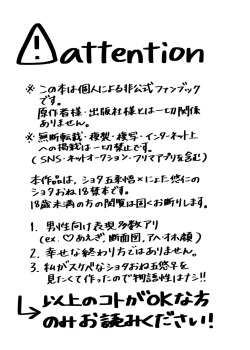 ⚠attention
※ この本は個人による非公式ファンブック
です。
原作者様・出版社様とは一切関係
ありません。
※ 無断転載・複製・複写・インターネット上
への掲載は一切禁止です。
(SNS・ネットオークション・フリマアプリを含む)
本作品は、ショタ五条悟×にょた悠仁の
ショタおね18禁本です。
18歳未満の方の閲覧は固くお断りします。
1. 男性向け表現多数アリ
(ex. ♡あえぎ、断面図、アヘオホ顔)
2. 幸せな終わり方ではありません。
3. 私がスケベなショタおね五悠♀を
見たくて作ったので物語性はナシ!!
以上のコトがOKな方
のみお読みください!